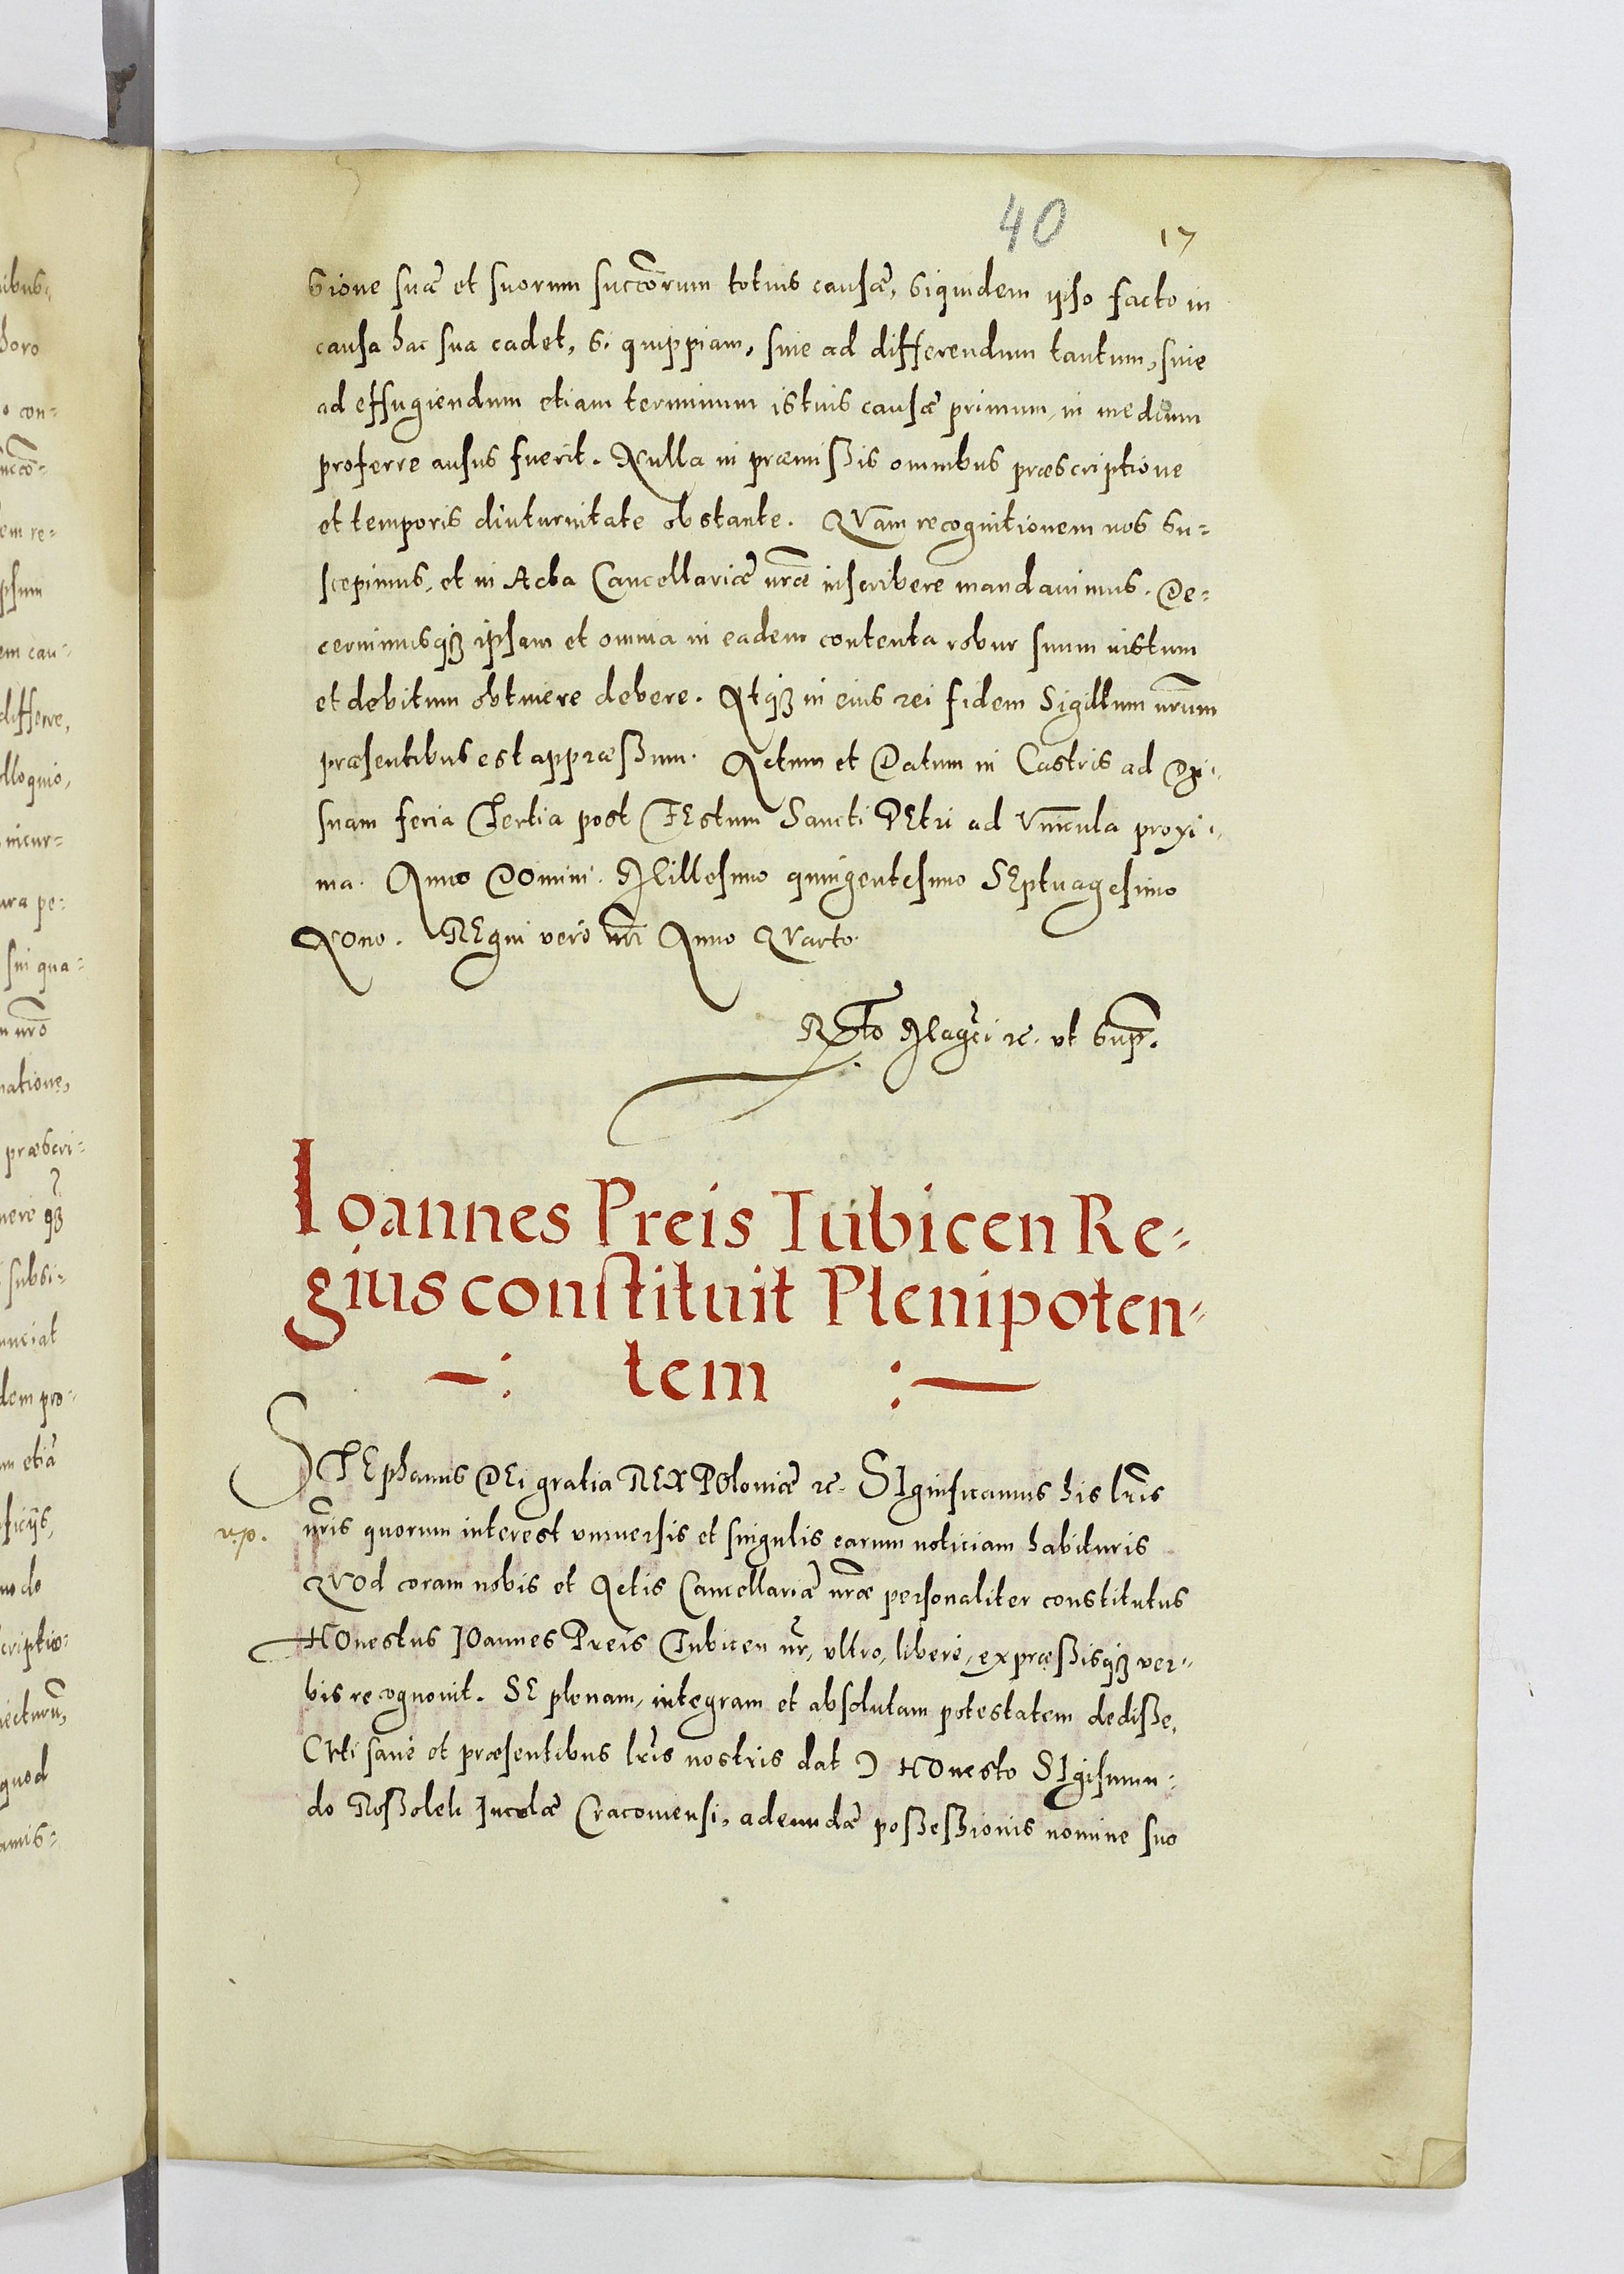 40 17
sione suæ et suorum succõrum totius causæ, siquidem ipso facto in
causa hac sua cadet, si quippiam, siue ad differendum tantum, siue
ad effugiendum etiam terminum istius causæ primum, in medium
proferre ausus fuerit. Nulla in præmißis omnibus præscriptione
et temporis diuturnitate obstante. QVam recognitionem nos su=
scepimus, et in Acta Cancellariæ nrãe inscribere mandauimus. De=
cernimusqꝫ ipsam et omnia in eadem contenta robur suum iustum
et debitum obtinere debere. Atqꝫ in eius rei fidem Sigillum nrũm
præsentibus est appræßum. Actum et Datum in Castris ad Di=
snam feria Tertia post FEstum Sancti PEtri ad Vincula proxi=
ma. Anno DOmini. Millesimo quingentesimo SEptuagesimo
NOno. REgni vero nrĩ Anno QVarto.
Rtõ Magci ꝛc. vt supr̃.
Ioannes Preis Tubicen Re=
gius constituit Plenipoten=
-: tem :-
STEphanus DEi gratia REX POloniæ ꝛc. SIgnificamus his lrĩs
r.p. nrĩs quorum interest vniuersis et singulis earum noticiam habituris
QVod coram nobis et Actis Cancellariæ nrãe personaliter constitutus
HOnestus IOannes Preis Tubicen nr̃, vltro, libere, expræßisqꝫ ver=
bis recognouit. SE plenam, integram et absolutam potestatem dediße,
(Vti sane et præsentibus lrĩs nostris dat) HOnesto SIgismun=
do Roßolek Incolæ Cracouiensi, adeundæ poßeßionis nomine suo